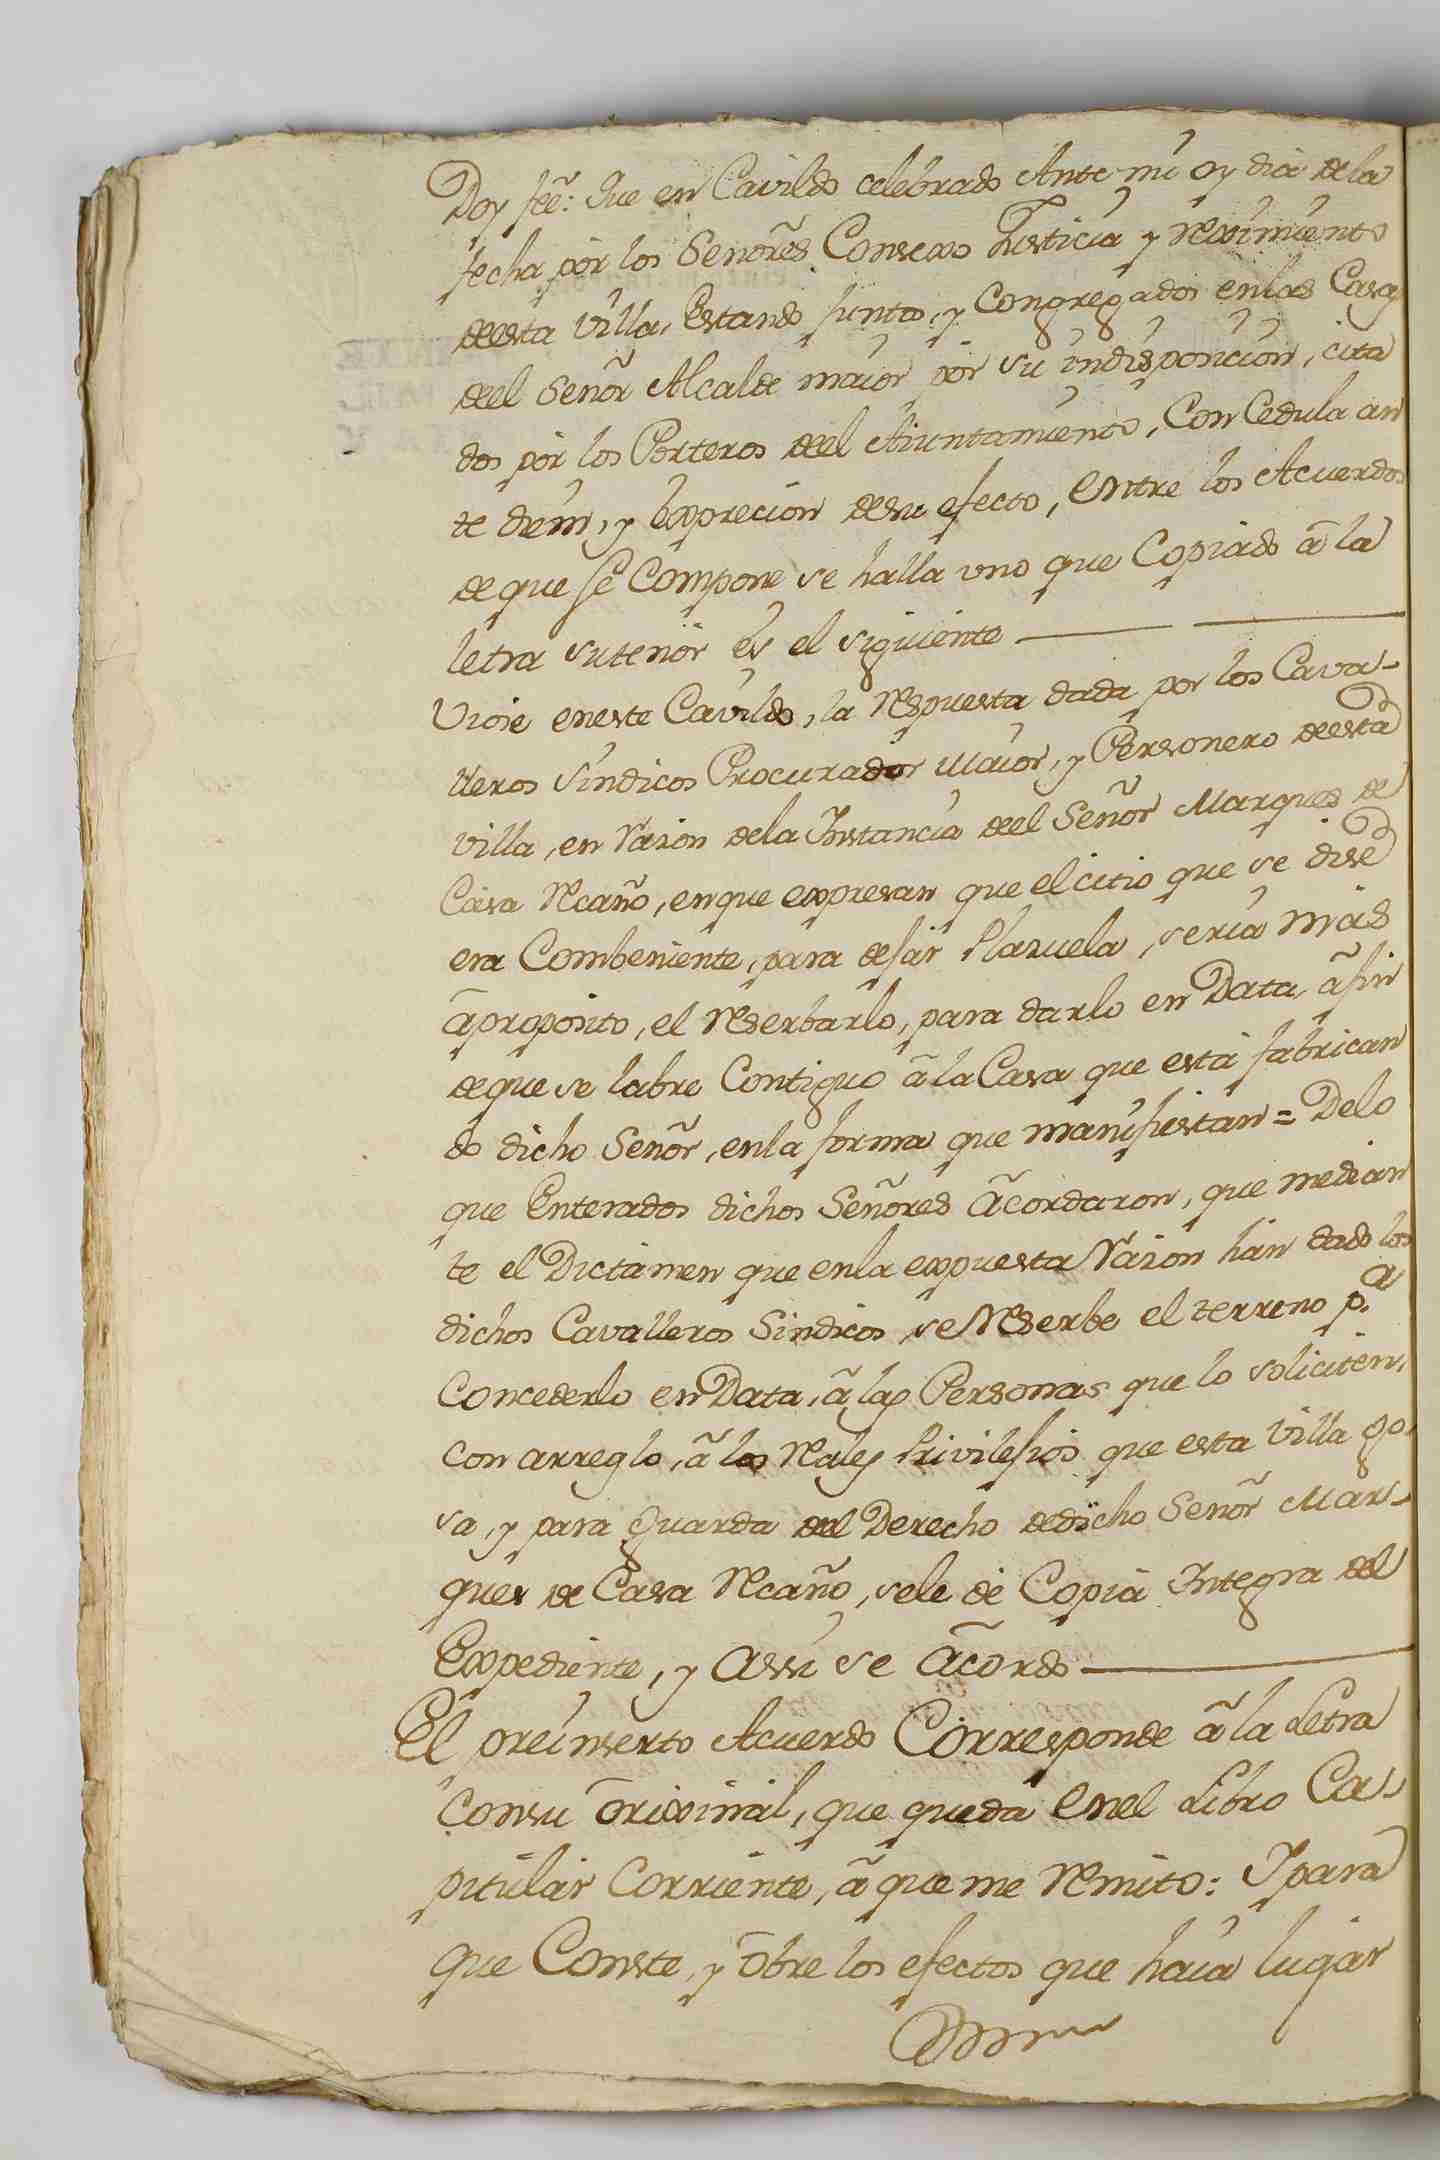 Doy feê: Que en Cavildo celebrado Ante mi oy dia de la
fecha por los Señores Consexo Justicia y reximiento
deesta villa, Estando juntos, y Congregados enlas Casas
deel Señor Alcalde maior por su indisposicion, cita
dos por los Porteros deel Aiuntamiento, Con Cedula an
te diem, y Exprecion desu efecto, Entre los Acuerdos
de que se Compone se halla uno que Copiado â la
letra sutenor es el siguiente
Viose eneste Cavildo, la respuesta dada por los Cava-
lleros Sindicos Procurador Maior, y Personero deesta
villa, en razon dela Instancia deel Señor Marques de
Casa Recaño, enque expresan que el citio que se dise
era Combeniente, para desar Plazuela, seria mas
âproposito, el reserbarlo, para darlo en Data, âfin
deque se labre Contiguo â la Casa que està fabrican
do dicho Señor, enla forma que manifiestan = Delo
que Enterados dichos Señores âcordaron, que median
te el Dictamen que enla expuesta razon han dado los
dichos Cavalleros Sindicos se reserbe el terreno p.a
Concederlo en Data, â las Personas que lo soliciten,
con arreglo, â los reales Privilesios que esta villa go,
sa, y para Guarda deel Derecho dedicho Señor Mar-
ques de Casa Recaño, sele dé Copia Integra del
Expediente, y assi se âcordo
El preinserto Acuerdo Corresponde â la Letra
consu ôrixinal, que queda Enel Libro Ca-
pitular Corriente, â que me remito: Ypara
que Conste, y ôbre los efectos que haia lugar